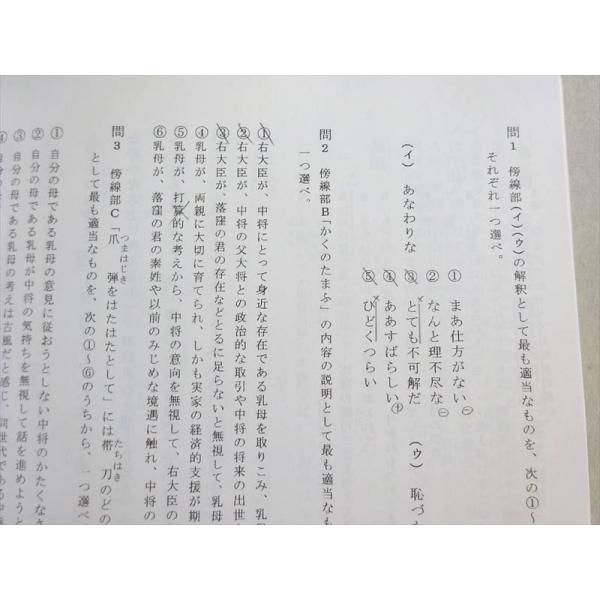 問1 傍線部(イ)(ウ)の解釈として最も適当なものを、次の①〜
それぞれ一つ選べ。
(イ) あなわりな
① まあ仕方がない
② なんと理不尽な
③ とても不可解だ
④ ああすばらしい
⑤ ひどくつらい
(ウ) 恥づ
問2 傍線部B「かくのたまふ」の内容の説明として最も適当なも
一つ選べ。
① 右大臣が、中将にとって身近な存在である乳母を取りこみ、乳
② 右大臣が、中将の父大将との政治的な取引や中将の将来の出世
③ 右大臣が、落窪の君の存在などとるに足らないと無視して、乳母
④ 乳母が、両親に大切に育てられ、しかも実家の経済的支援が期
⑤ 乳母が、打算的な考えから、中将の意向を無視して、右大臣の
⑥ 乳母が、落窪の君の素姓や以前のみじめな境遇に触れ、中将の
問3 傍線部C「爪弾をはたはたとして」には帯刀のどの
つまはじき
たちはき
として最も適当なものを、次の①〜⑥のうちから、一つ選べ
① 自分の母である乳母の意見に従おうとしない中将のかたくなさ
② 自分の母である乳母が中将の気持ちを無視して話を進めようと
③ 自分の母である乳母の考えは古風だと感じ、同世代である中